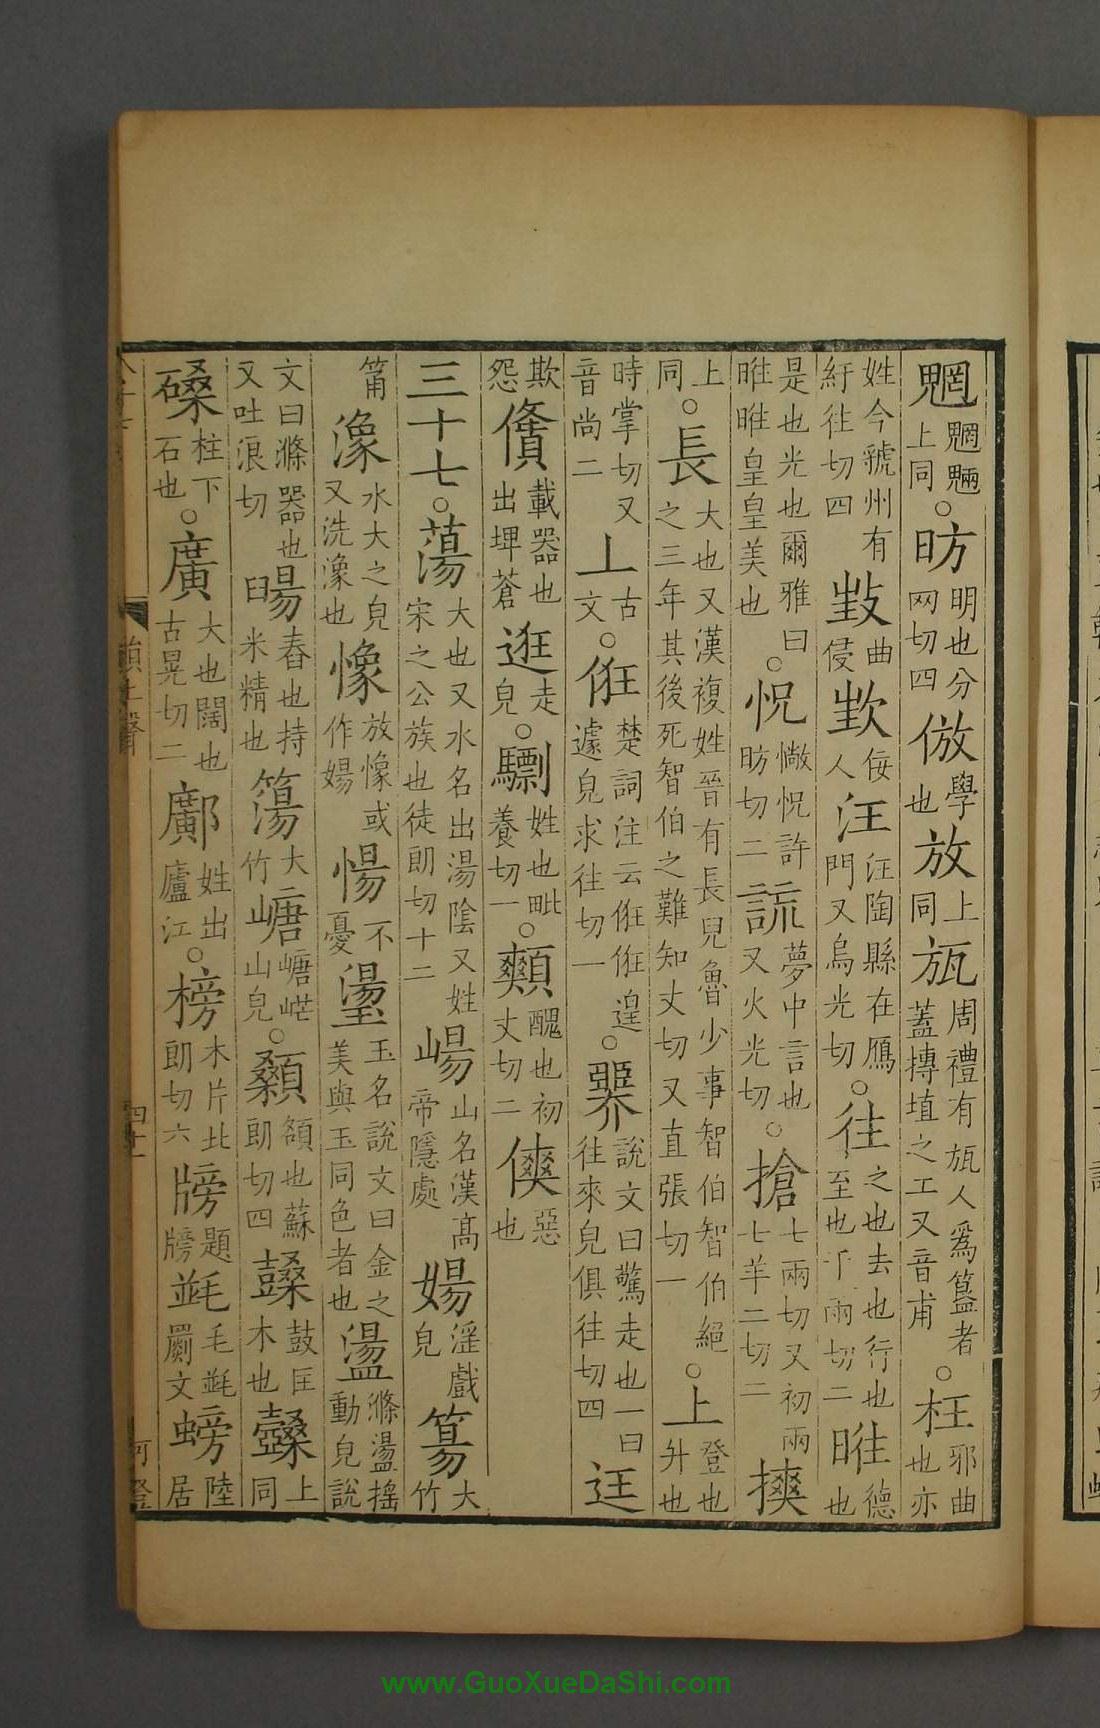 魍魍魎上同○昉明也分网切四倣學也放上同瓬周禮有瓬人爲簋者蓋摶埴之工又音甫○枉邪曲也亦
姓今虢州有紆往切四㞷曲侵㞷佞人汪汪陶縣在鴈門又烏光切○往之也去也行也至也于兩切二暀德也
是也光也爾雅曰暀暀皇皇美也○怳懒怳許昉切二謊夢中言也又火光切○搶七兩切又初兩七羊二切二摤
上同○長大也又漢複姓晉有長兒魯少事智伯智伯絕之三年其後死智伯之難知丈切又直張切一○上登也升也
時掌切又音尚二丄古文○俇楚詞注云俇俇遑遽皃求往切一○臩說文曰驚走也一曰往來皃俱往切四迋
欺怨儥載器也出埤蒼逛走皃○驃姓也毗養切一○䫪醜也初丈切二傸惡也
三十七○蕩大也又水名出湯陰又姓宋之公族也徒朗切十二崵山名漢高帝隱處婸淫戲皃簜大竹
筩潒水大之皃又洗潒也憿放像或作婸愓不憂璗玉名說文曰金之美與玉同色者也盪滌盪搖動皃說
文曰滌器也又吐浪切䑗舂也持米精也簜大竹嵣嵣㟐山皃○顙額也蘇朗切四鼞鼓匡木也鼞上同
磉柱下石也○廣大也闊也古晃切二鄺姓出廬江○榜木片北朗切六牓題牓㲍毛㲍罽文螃陸居
韻上聲
四十一
www.GuoXueDaShi.com